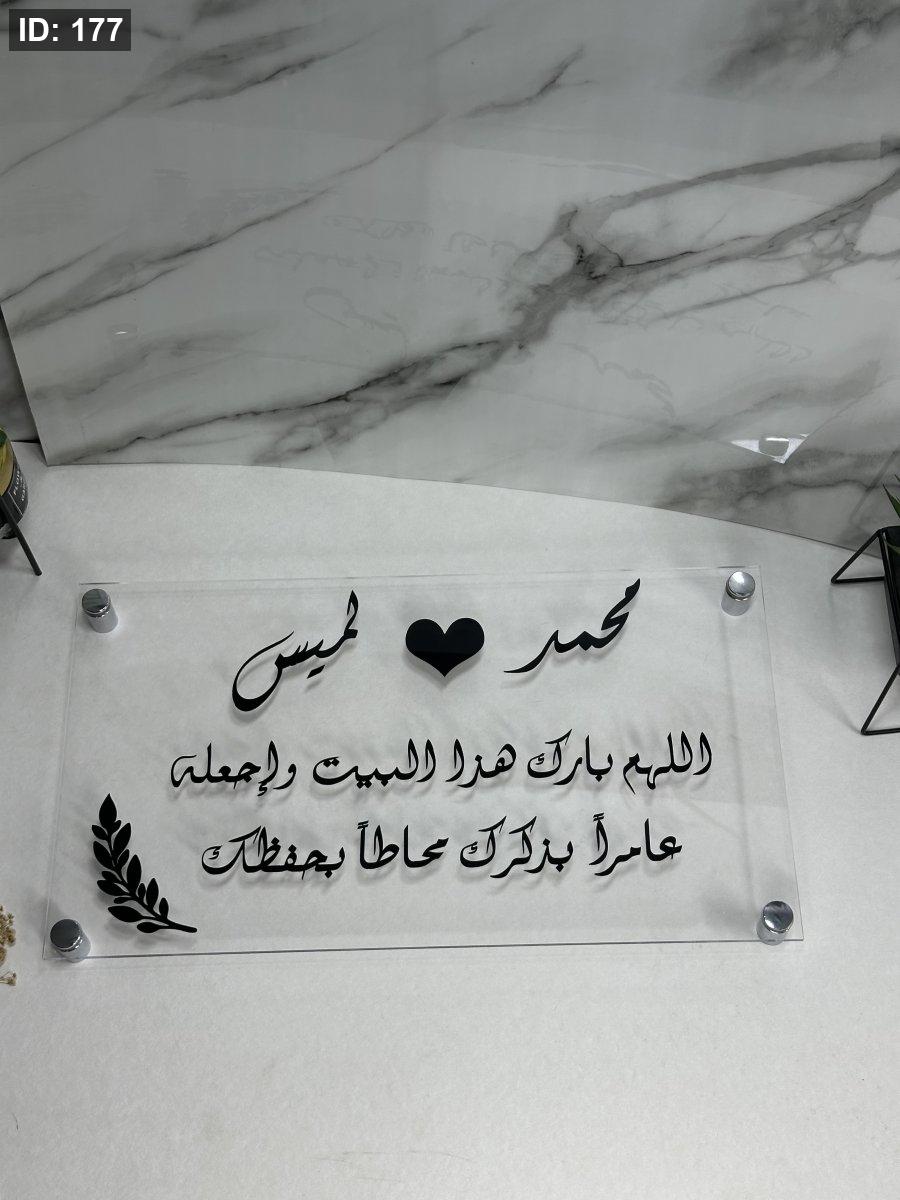 ID: 177
محمد ♥ لميس
اللهم بارك هذا البيت وإجعله
عامراً بذكرك محاطاً بحفظك